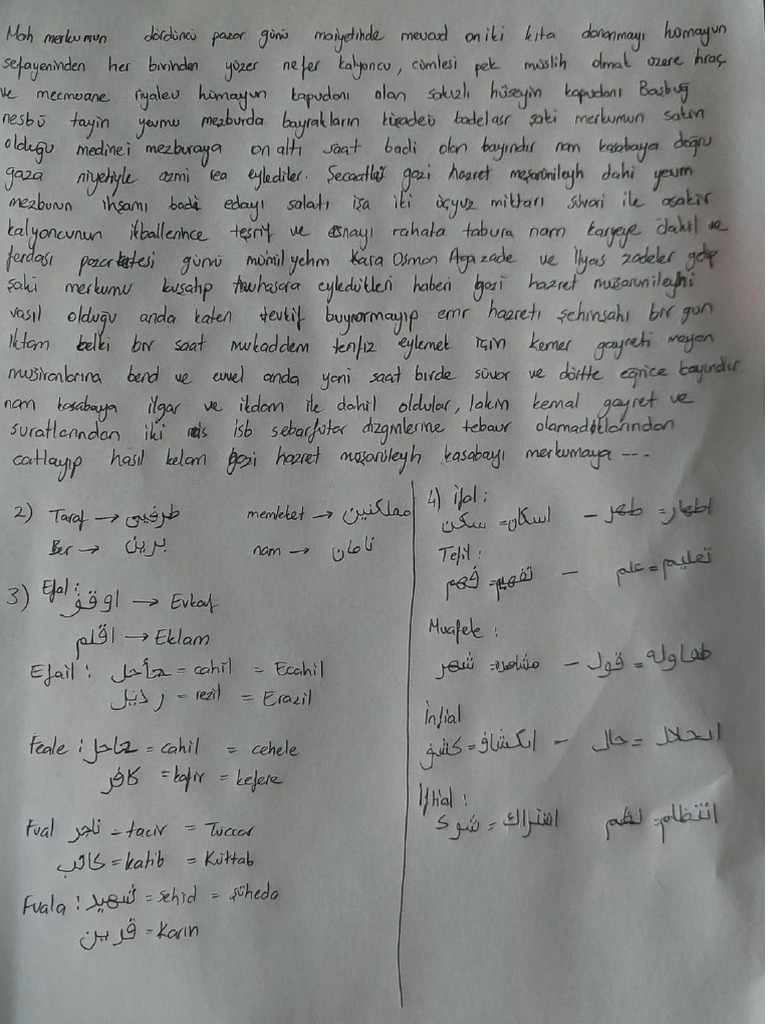 Mah merkumun dördüncü pazar günü maiyetinde mevcud on iki kıta donanmayı hümayun
sefayeninden her birinden yüzer nefer kalyoncu, cümlesi pek müslih olmak üzere ihraç
ve mecmuane riyaleu hümayun kapudanı olan sakızlı hüseyin kapudanı Başbuğ
nesbü tayin yevmu mezburda bayrakların küşadeü badelasr şaki merkumun sakin
olduğu medinei mezburaya on altı saat badi olan bayındır nam kasabaya doğru
gaza niyetiyle azmi rea eylediler. Secaatlaü gazi hazret meşarünileyh dahi yevm
mezburun ihşamı badi edayı salatı işa iki üçyüz miktarı süvari ile asakir
kalyoncunun ikballerince teşrif ve esnayı rahata tabura nam karyeye dahil ve
ferdası pazartesi günü mümil yehm Kara Osman Aga zade ve İlyas zadeler gelip
şaki merkumu kuşatıp muhasara eyledikleri haberi gazi hazret muşarunileyhi
vasıl olduğu anda katen tevkif buyurmayıp emr hazreti şehinşahı bir gün
iktam belki bir saat mukaddem tenfiz eylemek için kemer gayreti mayan
muşiranlarına bend ve evvel anda yani saat birde süvar ve dörtte eğrice bayındır
nam kasabaya ilgar ve ikdam ile dahil oldular, lakin kemal gayret ve
suratlarından iki isb sebarfutar dizginlerine tebaur olamadıklarından
catlayıp hasıl kelam gazi hazret muşarüileyh kasabayı merkumaya ---
2) Taraf → طرفين memleket → مملكتين
Ber → برين nam → نامان
3) Efal : اوقف → Evkaf
اقلم → Eklam
Efail : جأحل = cahil = Ecahil
رذيل = rezil = Erazil
Feale : جاحل = cahil = cehele
كافر = kafir = kefere
Fual تاجر = tacir = Tüccar
كاتب = katib = Küttab
Fuala : شهيد = şehid = şüheda
قرين = Karin
4) İfal :
اظهار = ظهر – اسكان = سكن
Tefil :
تعليم = علم – تفهيم = فهم
Mufaele :
مقاوله = قول – مشاهده = شهر
İnfial
انحلال = حال – انكشاف = كشف
İftial :
انتظام = نظم اشتراك = شوك